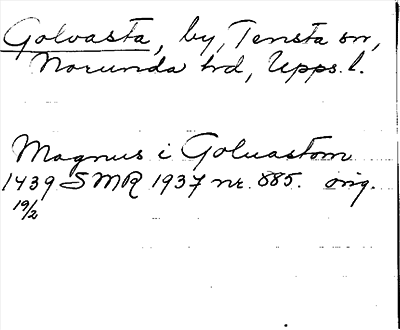 Golvasta, by, Tensta sn,
Norunda hd, Upps. l.
Magnus i Goluastom
1439 SMR 1937 nr. 885. orig.
19/2